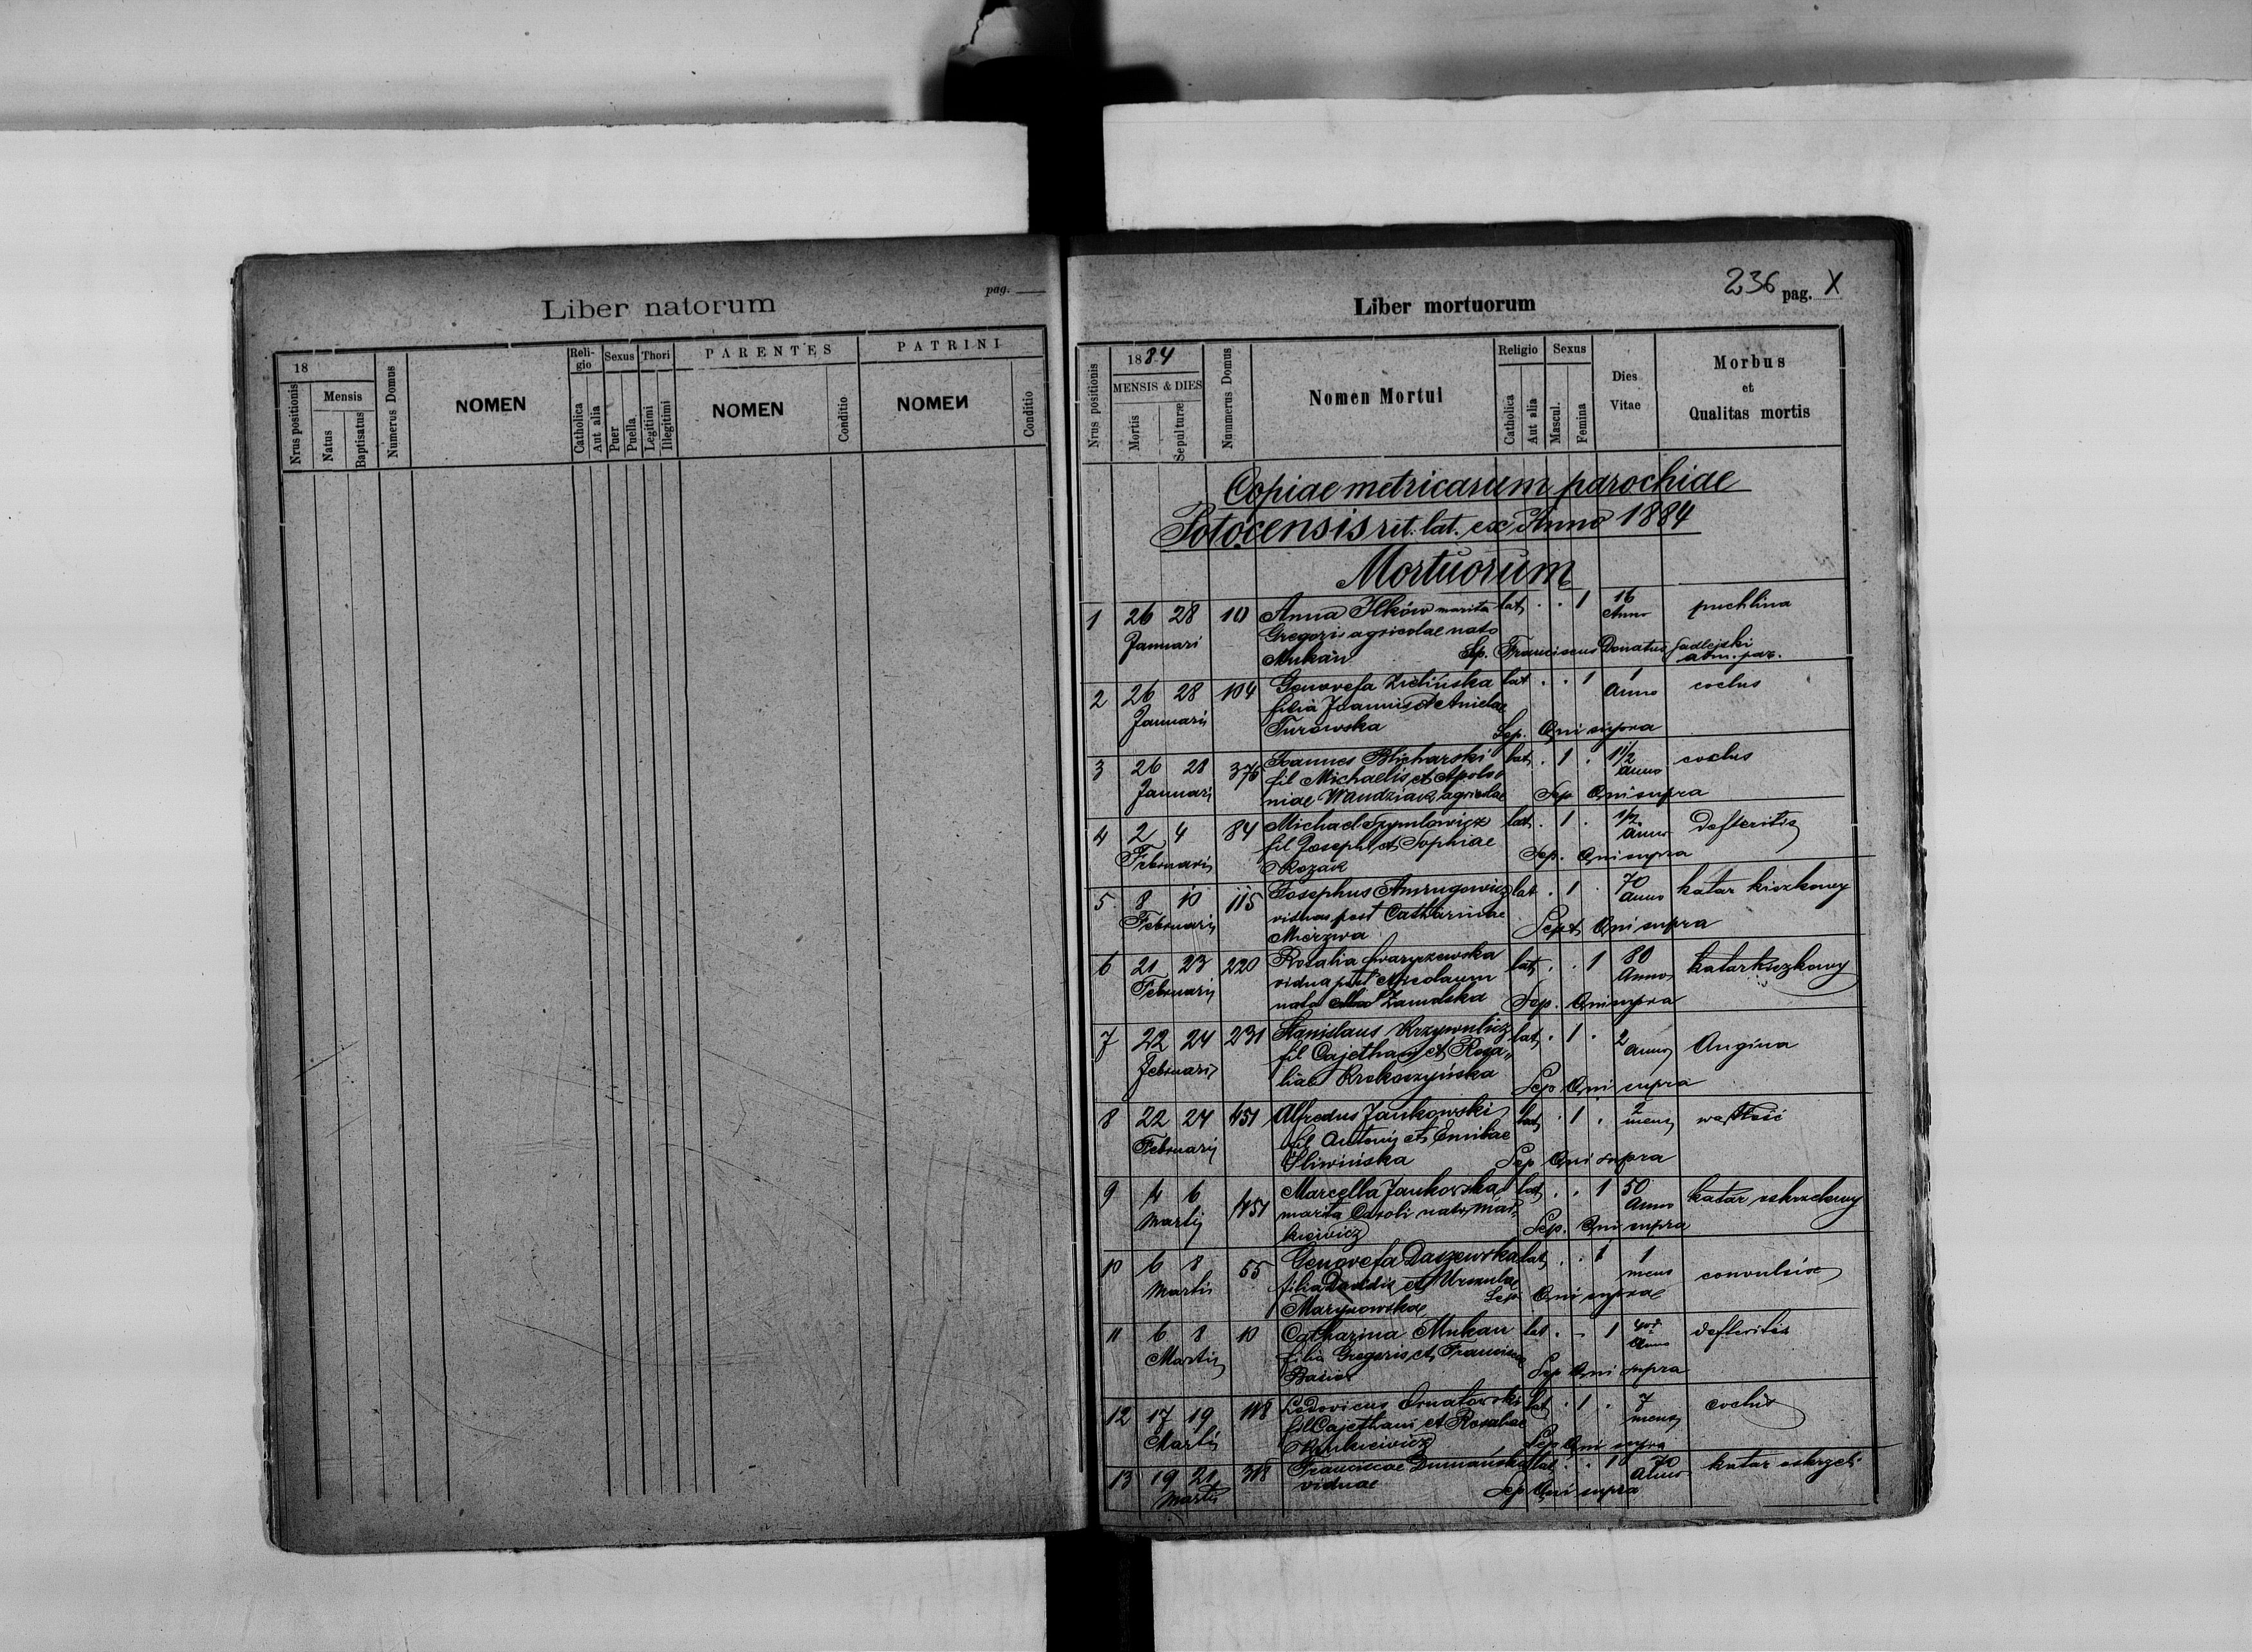 pag.
Liber natorum
18
Nrus positionis
Mensis
Natus
Baptisatus
Numerus Domus
NOMEN
Religio
Catholica
Aut alia
Sexus
Puer
Puella
Thori
Legitimi
Illegitimi
PARENTES
NOMEN
Conditio
PATRINI
NOMEN
Conditio
236 pag. X
Liber mortuorum
Nrus positionis
1884
MENSIS & DIES
Mortis
Sepulturæ
Nummerus Domus
Nomen Mortui
Religio
Catholica
Aut alia
Sexus
Mascul.
Femina
Dies
Vitae
Morbus
et
Qualitas mortis
Copiae metricarum parochiae
Potocensis rit. lat. ex Anno 1884
Mortuorum
1 26 28 10 Anna Ilków marita lat . . 1 16 puchlina
Januari Gregorii agricolae nata Anno
Mukan Sep. Franciscus Donatus Sadlejski
adm. par.
2 26 28 104 Genovefa Zielińska lat . . 1 1 coclus
Januarij filia Joannis et Anielae Anno
Turowska Sep. Qui supra
3 26 28 376 Joannes Blicharski lat . 1 . 1 1/2 coclus
Januarij fil Michaelis et Apolo Anno
niae Wandziak agricolae Sep Qui supra
4 2 4 84 Michael lat . 1 . 1/2 Defteritis
Februarij fil Josephi et Sophiae Anno
Kozak Sep. Qui supra
5 8 10 115 Josephus lat . 1 . 70 katar kiszkowy
Februarij viduus post Catharinae Anno
Mierzwa Sept Qui supra
6 21 23 220 Rosalia lat . . 1 80 katar kiszkowy
Februarij vidua post Nicolaum Anno
nata Sep. Qui supra
7 22 24 231 Stanislaus Krzywulicz lat . 1 . 2 Angina
Februarij fil Cajethani et Rosa Anno
liae Krokoszyńska Sep Qui supra
8 22 24 451 Alfredus Jankowski lat . 1 . 2 wątłość
Februarij fil Antonij et Emiliae mens
Śliwińska Sep Qui supra
9 4 6 451 Marcella Jankowska lat . . 1 50 katar oskrzelowy
Martij marita Caroli nata Mar Anno
kiewicz Sep. Qui supra
10 6 8 55 Genovefa Daszewska lat . . 1 1 convulsio
Martii filia et Ursulae mens
Marynowskae Sep Qui supra
11 6 8 10 Catharina Mukan lat . - 1 defteritis
Martij filia Gregorii et Franciscae Anno
Sep Qui supra
12 17 19 118 Ludovicus Ornatowski lat . 1 . 7 coclus
Martij fil Cajethani et Rosaliae mens
Sep Qui supra
13 19 21 318 Franciscae Dumańska lat . . 1 70 katar oskrzeli
Martii viduae Anno
Sep Qui supra